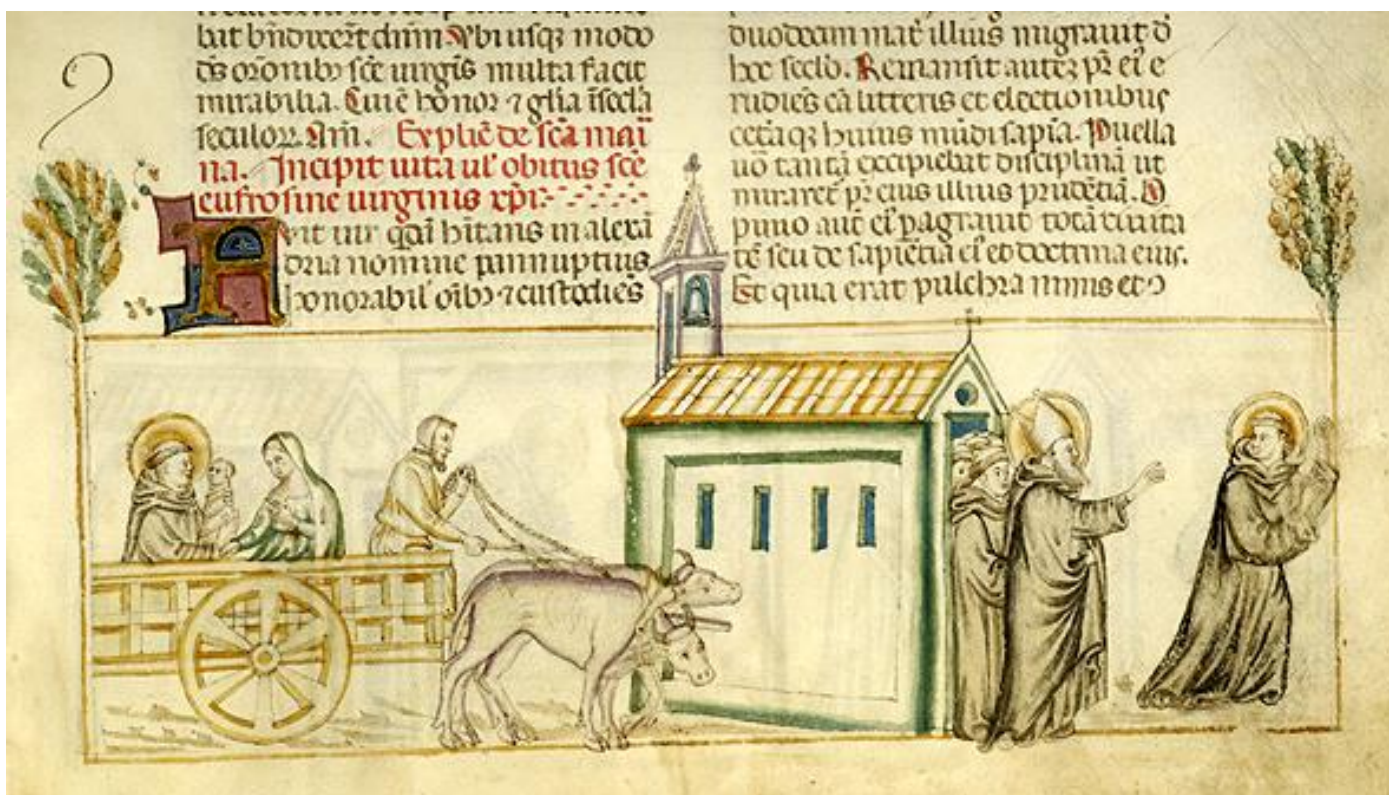 bat bñdixer̃t dñm. Vbi usqȝ modo
d̃s or̃onibȝ sc̃e uirgis̃ multa facit
mirabilia. Cui ẽ honor ⁊ gl̃ia ĩ secl̃a
seculoꝝ. Am̃. Explic̃ de sc̃a mari
na. Incipit uita ul̃ obitus sc̃e
eufrosine uirginis xp̃i:
uit uir qda᷒ hĩtans in alexã
dria nomine pannuptius
honorabil̃ oĩbȝ ⁊ custodiẽs
duodecim mat̃ illius migrauit d̃
hoc sec̃lo. Remansit autẽȝ pr̃ ei᷒ e
rudiẽs eã litteris et electionibus
cet̃aqȝ huius mũdi sapĩa. Puella
uõ tantã excipiebat disciplinã ut
miraret̃ pr̃ eius illius prudẽtiã. O
pinio aut̃ ei᷒ p̱agrauit totã ciuita
tẽ seu de sapiẽtia ei᷒ et doctrina eius.
Et quia erat pulchra nimis et ɔ